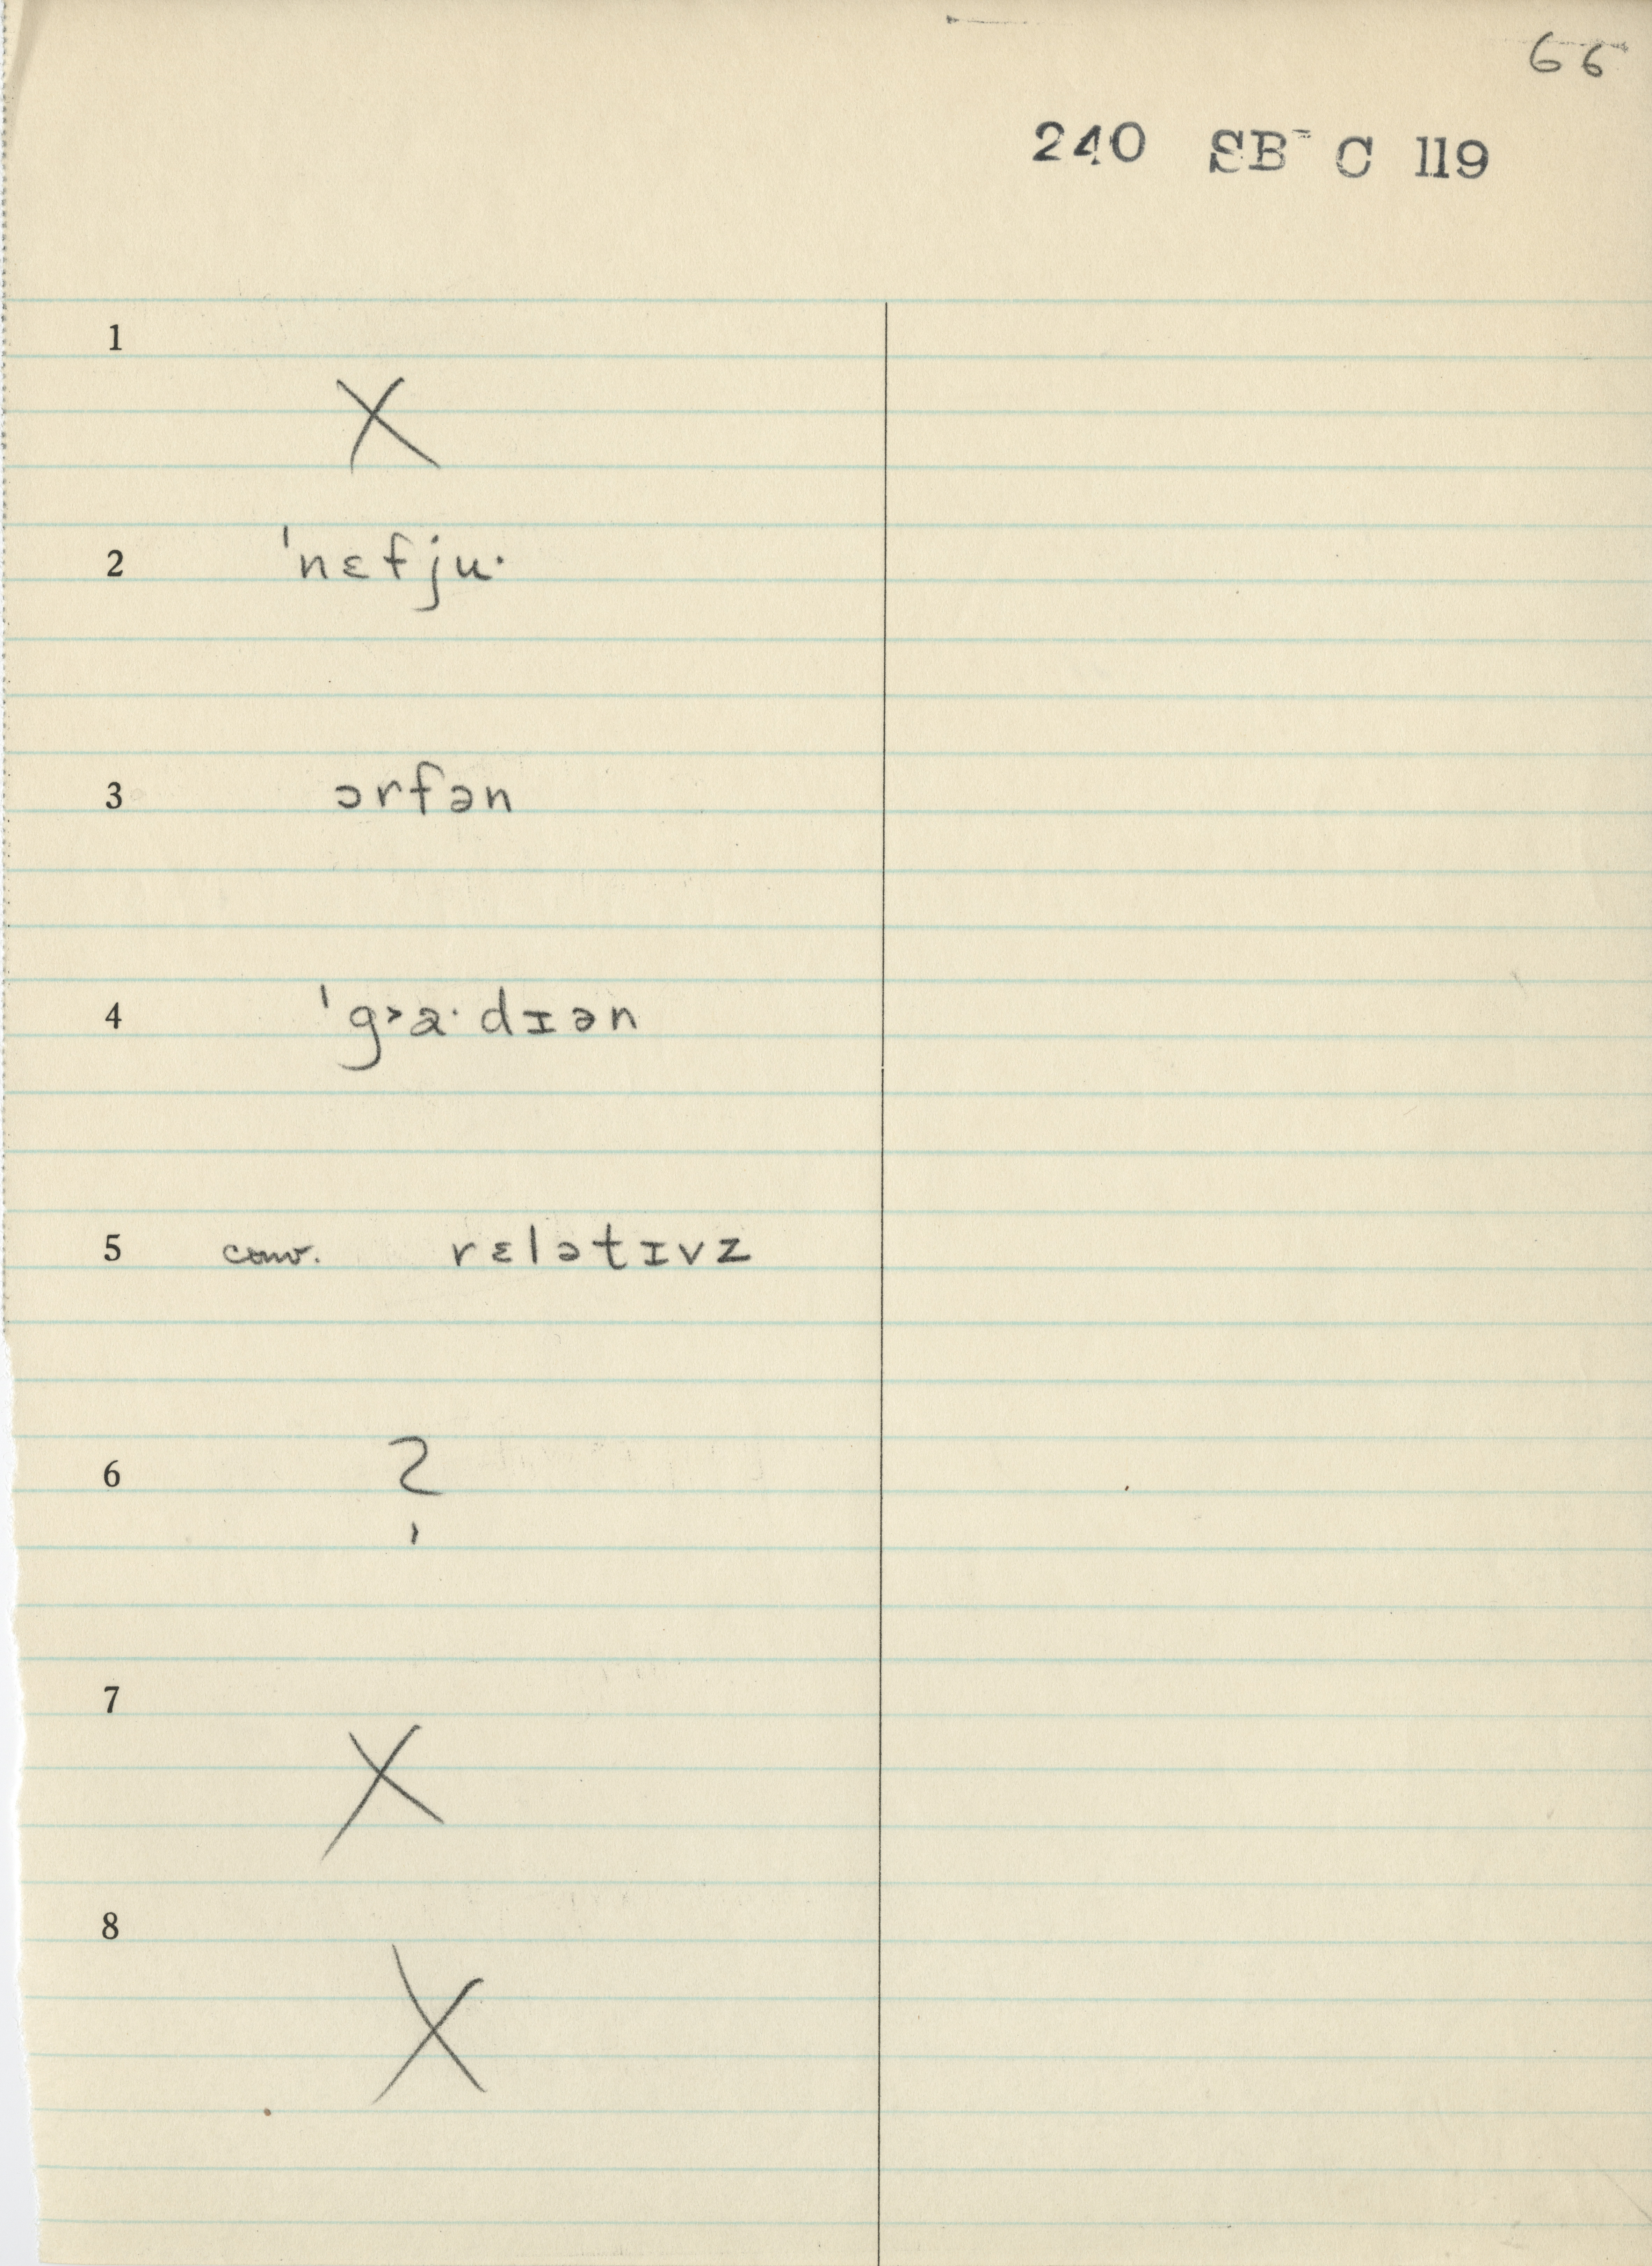 66
240 SB C 119
1
X
2 ˈnɛfju·
3 ɔrfən
4 ˈg˃a·dɪən
5 conv. rɛlətɪvz
6 ?
7
X
8
X